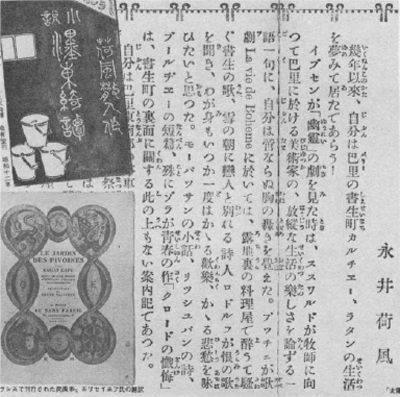 永井荷風
幾年以來、自分は巴里の書生町カルチエー、ラタンの生活
を夢みて居たであらう!
イブセンが「幽靈」の劇を見た時は、オスワルドが牧師に向
つて巴里に於ける美術家の、放縱な生活の樂しさを論ずる一
語一句に、自分は云ひ知らぬ胸の轟きを覺えた。プッチニが歌
劇 La vie de Bohème に於いては、露地裏の料理屋で醉うて騷
ぐ書生の歌、雪の朝に戀人と別れる詩人ロドルフが恨の歌
を聞き、わが身もいつか一度はかゝる歡樂、かゝる悲愁を味
ひたいと思つた。モーパツサンの小話、リツシュパンの詩、
ブールヂエーの短篇、殊にゾラが靑春の作「クロードの懺悔」
は、書生町の裏面に關する此の上もない案内記であつた。
自分は巴里
荷風
小説
昭和十二年
LE JARDIN
DES PIVOINES
KAFU NAGAI
AU SANS PAREIL
ランスで刊行された